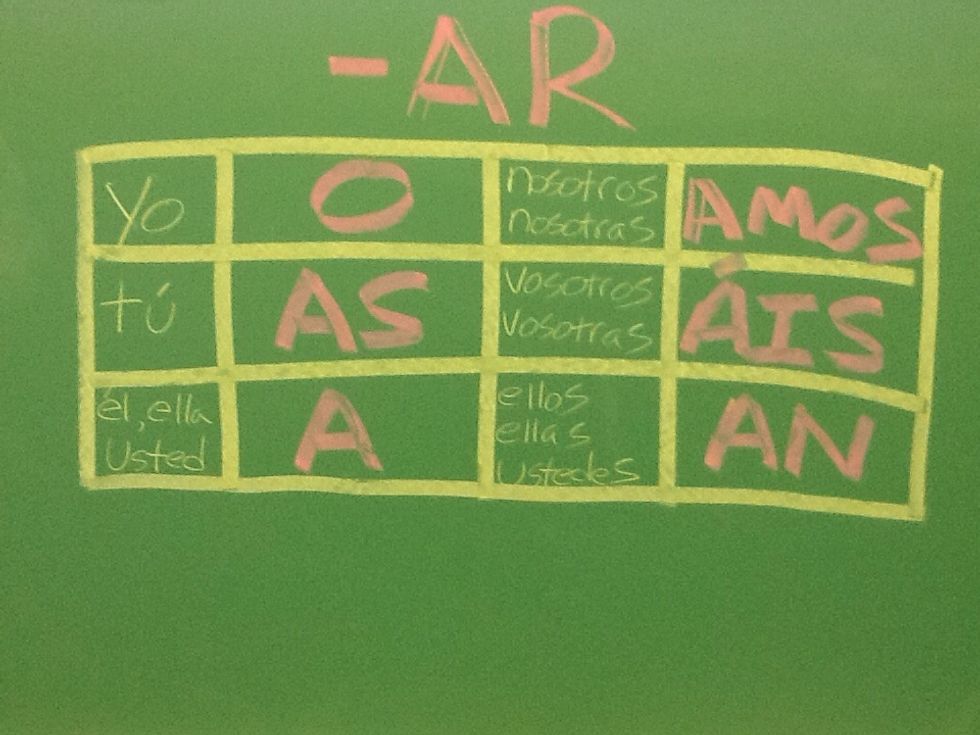 -AR
yo O nosotros nosotras AMOS
tú AS vosotros vosotras ÁIS
él, ella Usted A ellos ellas Ustedes AN